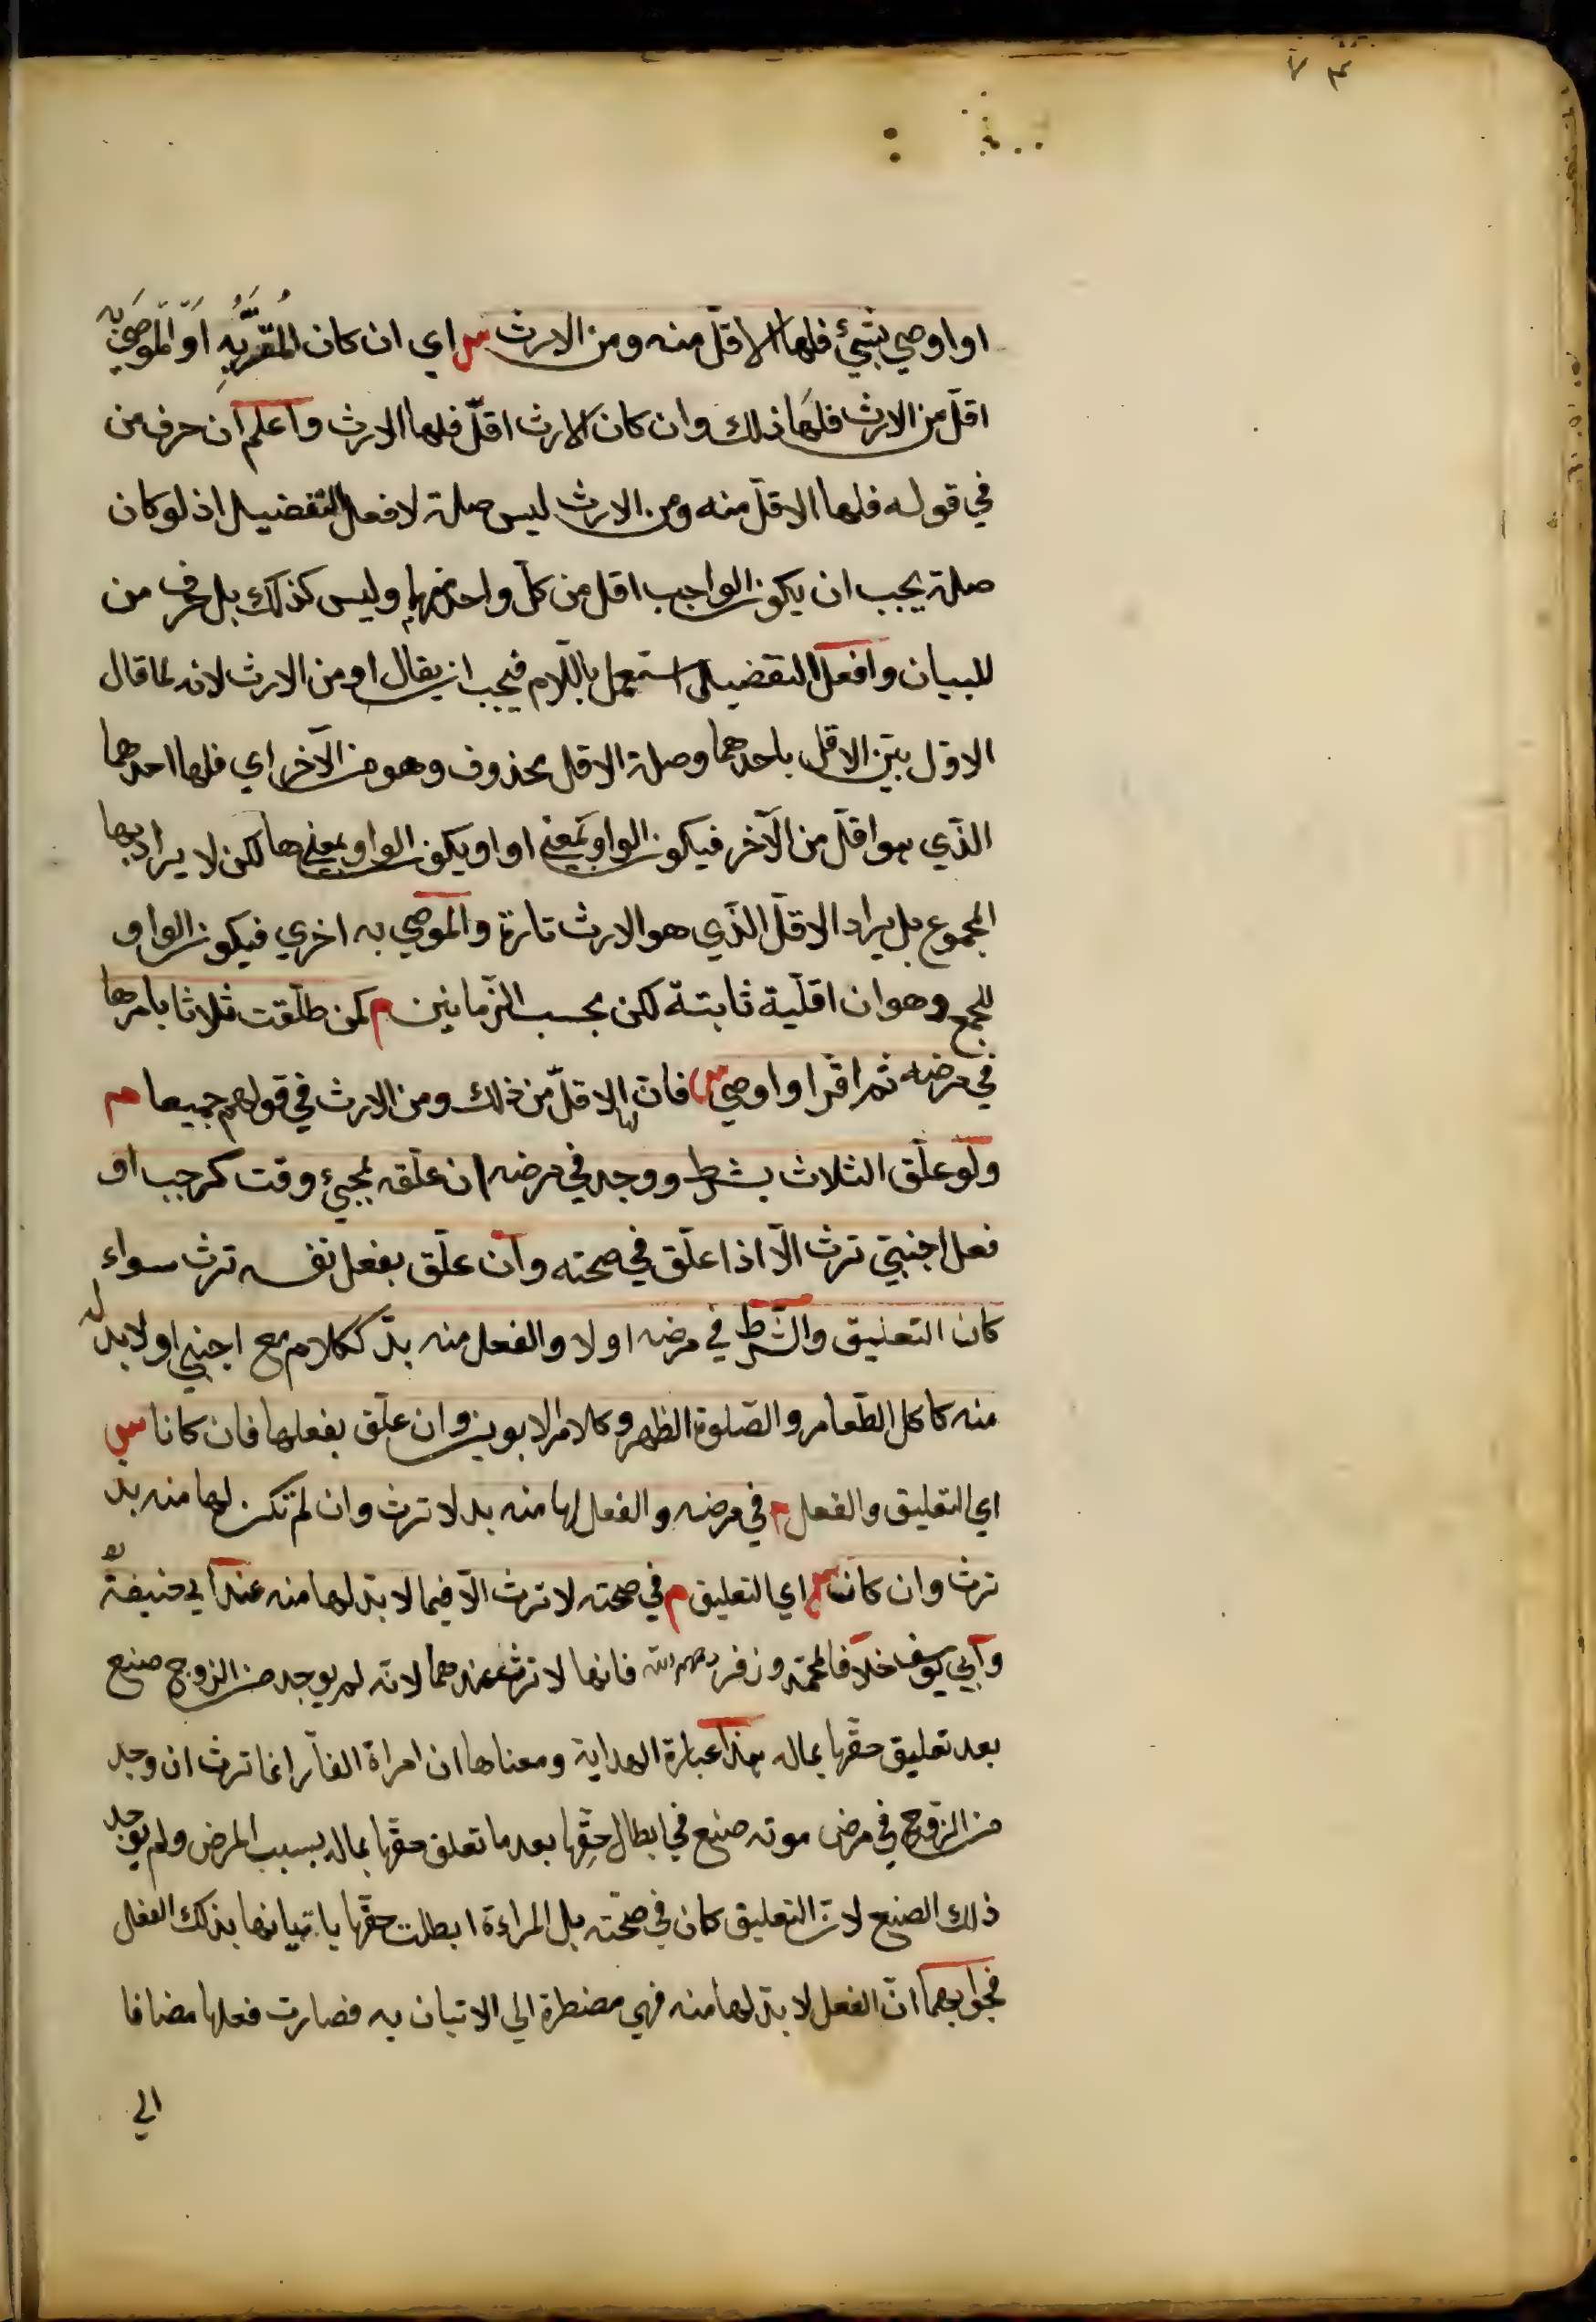 او اوصي بشيئ فلها الاقلّ منه ومن الارث س اي ان كان المُقَرُّ بِهِ اَوِ الْمُوصَي به
اقلّ من الارث فلها ذلك وان كان الارث اقلّ فلها الارث واعلم ان حرف من
في قوله فلها الاقلّ منه ومن الارث ليس صلة لافعل التفضيل اذ لو كان
صلة يجب ان يكون الواجب اقل من كلّ واحد منهما وليس كذلك بل حرف من
للبيان وافعل التفضيل استعمل باللّام فيجب ان يقال او من الارث لانه لما قال
الاقل بيّن الاقل باحدهما وصلة الاقل محذوف وهو من الآخر اي فلها احدهما
الذّي هو اقلّ من الآخر فيكون الواو بمعني او او يكون الواو بمعناها لكن لا يراد بها
المجموع بل يراد الاقلّ الذّي هو الارث تارة والموصي به اخري فيكون الواو
للجمع وهو ان اقلّية ثابتة لكن بحسب الزّمانين م كمن طلّقت ثلاثا بامرها
في مرضه ثم اقرّ او اوصي س فان لها الاقلّ من ذلك ومن الارث في قولهم جميعا م
ولو علّق الثلاث بشرط ووجد في مرضه ان علّقه بمجيئ وقت كرجب او
فعل اجنبيّ ترث الّا اذا علّق في صحته وان علّق بفعل نفسه ترث سواء
كان التعليق والشّرط في مرضه او لا والفعل منه بدّ ككلام مع اجنبي او لا بد له
منه كاكل الطّعام والصّلوة الظهر وكلام الابوين وان علّق بفعلها فان كانا س
اي التعليق والفعل م في مرضه والفعل لها منه بد لا ترث وان لم تكن لها منه بد
ترث وان كان س اي التعليق م في صحته لا ترث الّا فيما لا بدّ لها منه عند ابي حنيفة رح
وابي يوسف خلافا لمحمّد وزفر رحمهم الله فانها لا ترث عندهما لانّه لم يوجد من الزوج صنيع
بعد تعليق حقّها بماله هذا عبارة الهداية ومعناها ان امراة الفارّ انما ترث ان وجد
من الزّوج في مرض موته صنيع في ابطال حقّها بعد ما تعلق حقّها بماله بسبب المرض ولم يوجد
ذلك الصنيع لانّ التعليق كان في صحّته بل المراءة ابطلت حقّها باتيانها بذلك الفعل
فجوابهما انّ الفعل لا بدّ لها منه فهي مضطرة الي الاتيان به فصارت فعلها مضافا
الي